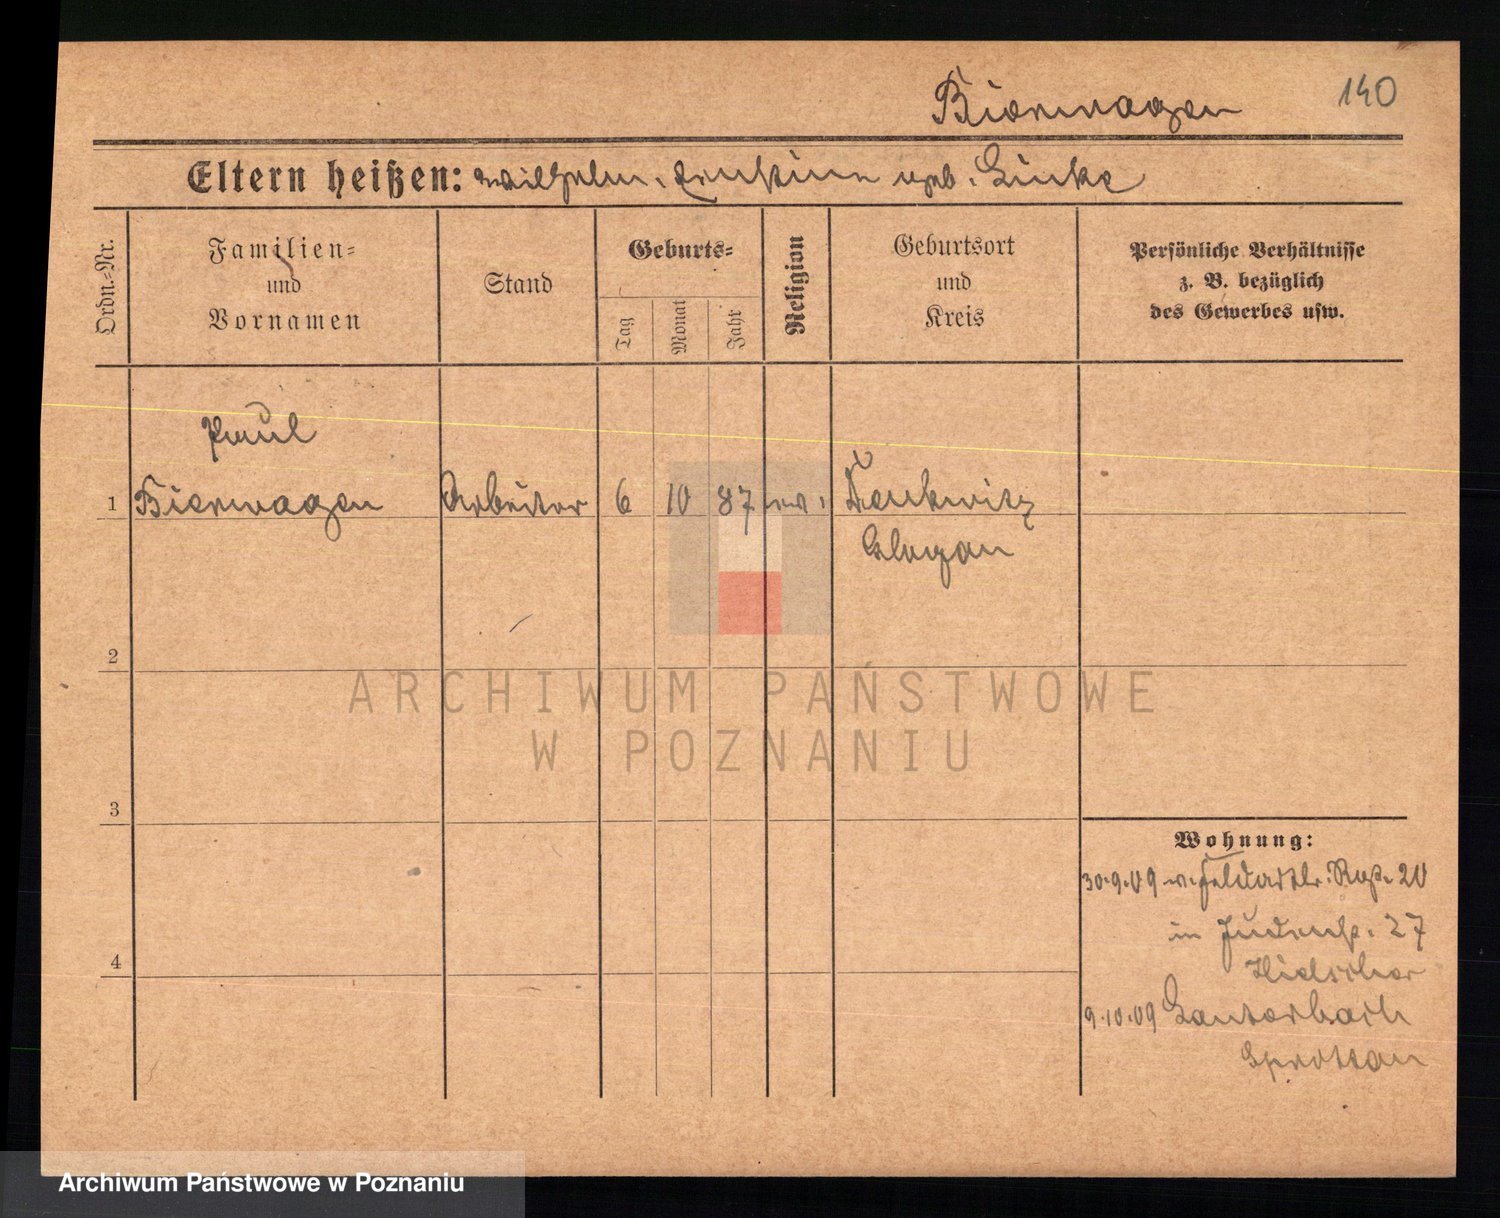 Bierwagen 140
Eltern heißen: Wilhelm, Ernstine geb. Linke
Ordn.=Nr.
Familien=
und
Vornamen
Stand
Geburts=
Tag
Monat
Jahr
Religion
Geburtsort
und
Kreis
Persönliche Verhältnisse
z. B. bezüglich
des Gewerbes usw.
Paul
1 Bierwagen Arbeiter 6 10 87 ev.
Glogau
2
ARCHIWUM PAŃSTWOWE
W POZNANIU
3
Wohnung:
30.9.09 v. Feldartlr. Rgt. 20
in Judenstr. 27
4
9.10.09 Lauterbach
Sprottau
Archiwum Państwowe w Poznaniu